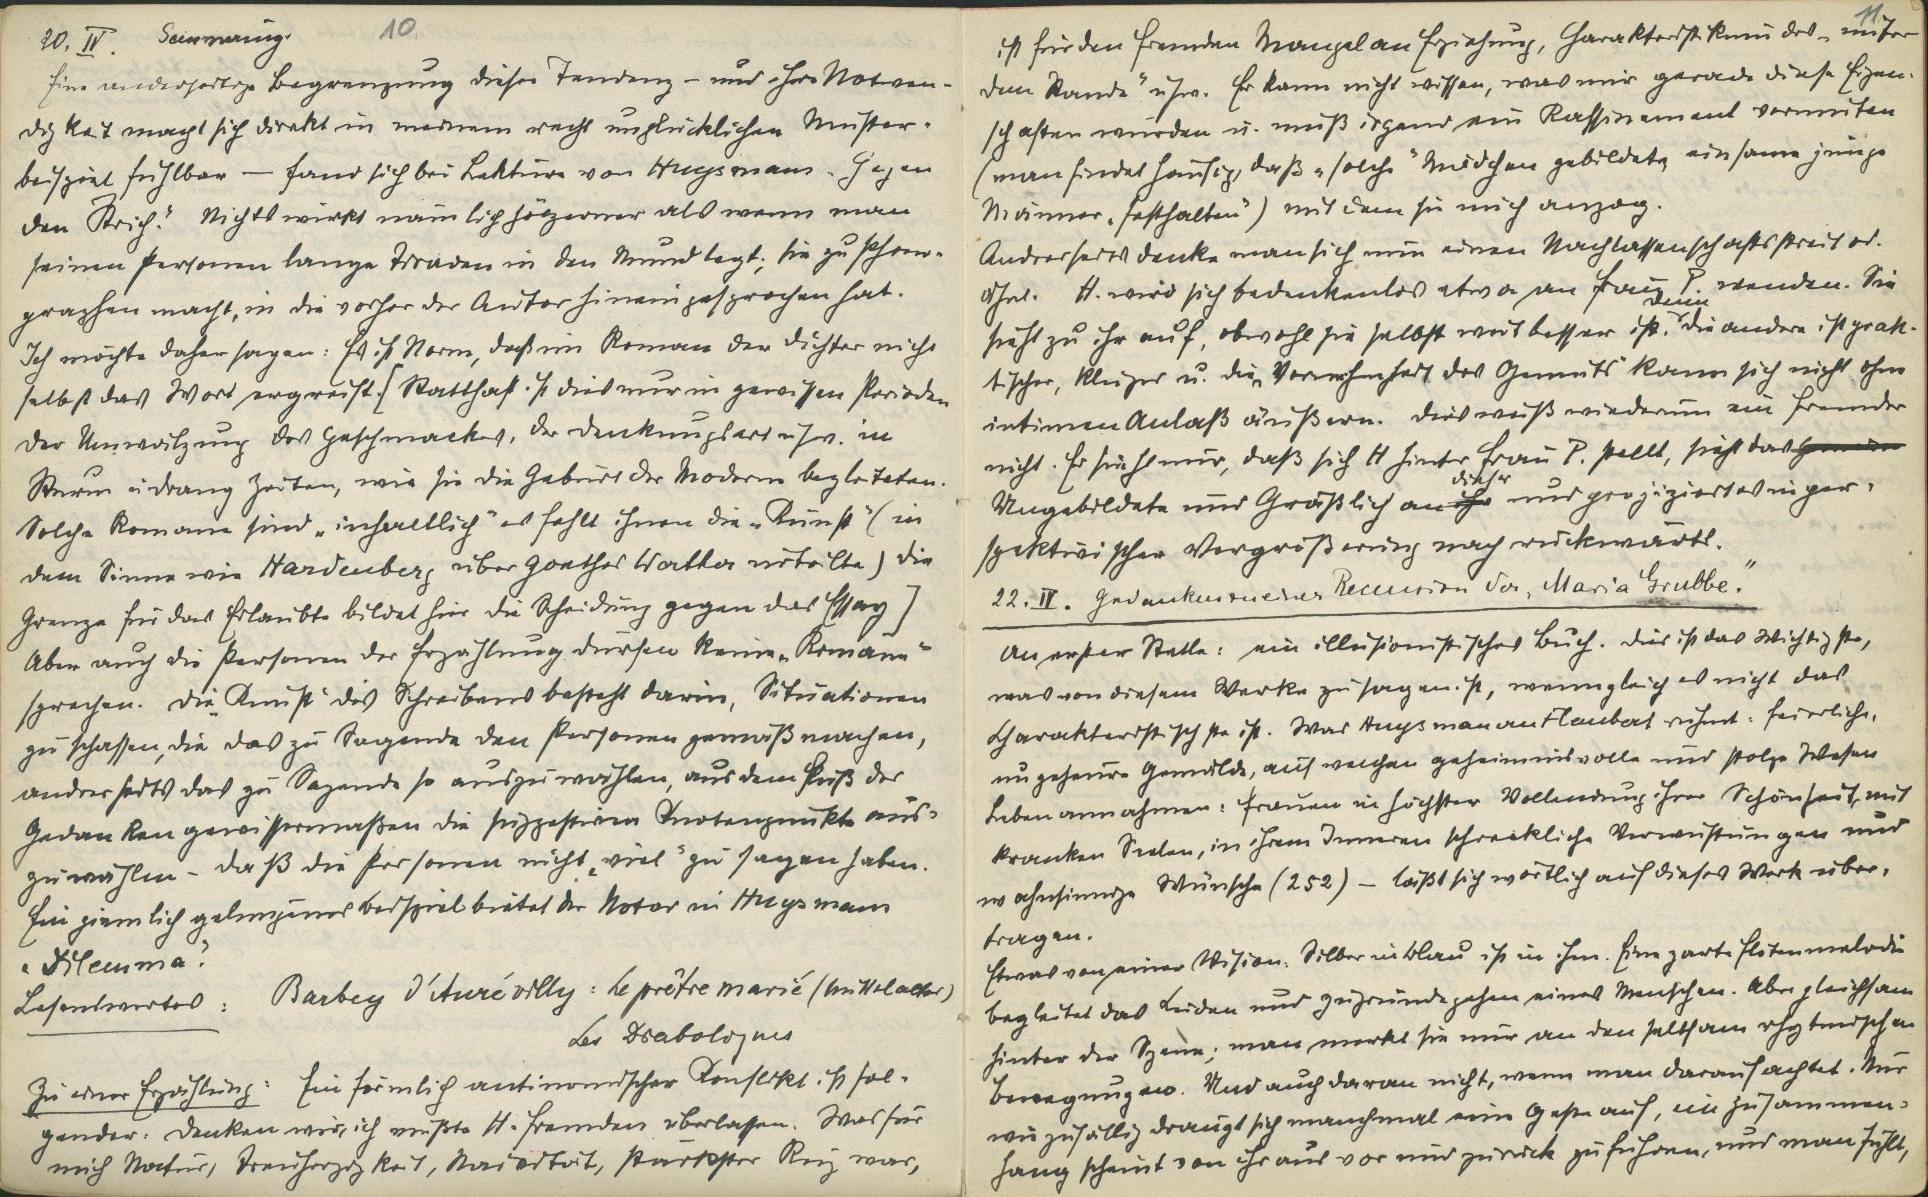 10
20. IV. Semmering.
Eine anderseitige Begrenzung dieser Tendenz – und ihre Notwen-
digkeit macht sich direkt in meinem recht unglücklichen Muster-
beispiel fühlbar — fand sich bei Lektüre von Huysmans „Gegen
den Strich." Nichts wirkt nämlich hölzerner als wenn man
seinen Personen lange Tiraden in den Mund legt; sie zu Phono-
graphen macht, in die vorher der Autor hineingesprochen hat.
Ich möchte daher sagen: Es ist Norm, daß im Roman der Dichter nicht
selbst das Wort ergreift. [Statthaft ist dies nur in gewissen Perioden
der Umwälzung des Geschmackes, der Denkungsart usw. in
Sturm u drang Zeiten, wie sie die Geburt der Moderne begleiteten.
Solche Romane sind „inhaltlich" es fehlt ihnen die „Kunst" (in
dem Sinne wie Hardenberg über Goethes Walter urteilte) die
Grenze für das Erlaubte bildet hier die Scheidung gegen das Essay]
Aber auch die Personen der Erzählung dürfen keine „Romane"
sprechen. Die „Kunst" des Schreibens besteht darin, Situationen
zu schaffen, die das zu Sagende den Personen gemäß machen,
anderseits das zu Sagende so auszuwählen, aus dem Fluß der
Gedanken gewissermaßen die suggestiven Knotenpunkte aus-
zuwählen – daß die Personen nicht „viel" zu sagen haben.
Ein ziemlich gelungenes Beispiel bietet der Notar in Huysmans
„Dilemma".
Lesenswertes: Barbey d'Aurévilly: Le prêtre marié (Mittelalter)
Les Diaboliques
Zu einer Erzählung: Ein förmlich antinomischer Konflikt ist fol-
gender: Denken wir, ich müßte H. Fremden überlassen. Was für
mich Natur, Treuherzigkeit, Naivität, stärkster Reiz war,
11
ist für den Fremden Mangel an Erziehung, Charakteristikum des „unter
dem Stande" usw. Er kann nicht wissen, was mir gerade diese Eigen-
schaften wurden u. muß irgend ein Raffinement vermuten
(man findet häufig, daß „solche" Mädchen gebildete, einsame junge
Männer „festhalten") mit dem sie mich anzog.
Anderseits denke man sich nun einen Nachlassenschaftsstreit od.
ähnl. H. wird sich bedenkenlos etwa an Frau P. wenden. Sie
sieht zu ihr auf, obwohl sie selbst weit besser ist, denn die andere ist prak-
tischer, klüger u. die „Vornehmheit des Gemüts" kann sich nicht ohne
intimen Anlaß äußern. Dies weiß wiederum ein Fremder
nicht. Er sieht nur, daß sich H hinter Frau P. stellt, sieht das
Ungebildete und Gräßliche an dieser und projiziert es in per-
spektivischer Vergrößerung nach rückwärts.
22. IV. Gedanken einer Recension der „Maria Grubbe."
An erster Stelle: ein illusionistisches Buch. Dies ist das Wichtigste,
was von diesem Werke zu sagen ist, wenngleich es nicht das
Charakteristischste ist. Was Huysman an Flaubert rühmt: feierliche,
ungeheure Gemälde, auf welchen geheimnisvolle und stolze Wesen
Leben annahmen: Frauen in höchster Vollendung ihrer Schönheit, mit
kranken Seelen, in ihrem Inneren schreckliche Verwüstungen und
wahnsinnige Wünsche (252) – läßt sich wörtlich auf dieses Werk über-
tragen.
Etwas von einer Vision: Silber in Blau ist in ihm. Eine zarte Flötenmelodie
begleitet das Leiden und Zugrundegehen eines Menschen. Aber gleichsam
hinter der Szene; man merkt sie nur an den seltsam rhytmischen
Bewegungen. Und auch daran nicht, wenn man darauf achtet. Nur
wie zufällig drängt sich manchmal eine Geste auf, ein Zusammen-
hang scheint von ihr aus vor und zurück zu führen, und man fühlt,